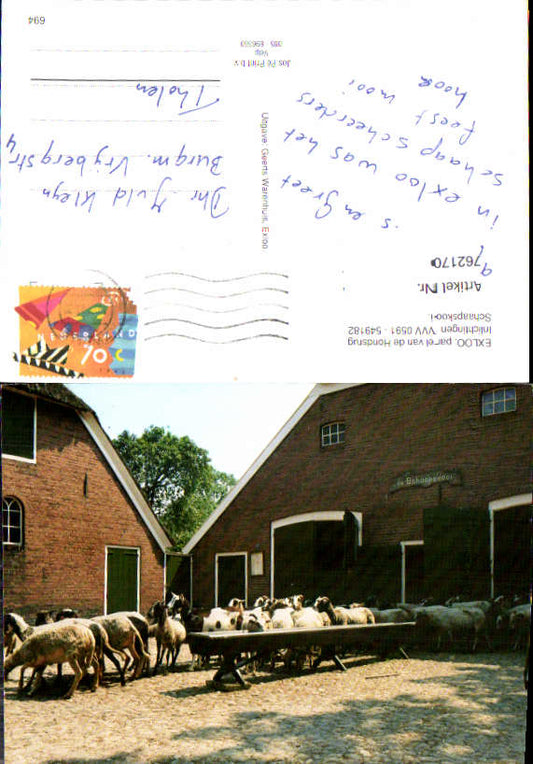 EXLOO, parel van de Hondsrug
Inlichtingen VVV 0591 - 549182
Schaapskooi
Artikel Nr.
762170
s en Greet
in exloo was het
schaap scheerders
feest mooi
hoor
Uitgave: Geerts Warenhuis, Exloo
Jos Pé Print b.v.
Velp
085 - 696350
Dhr
Kleyn
Burgm. Vrijbergstr
4
Tholen
694
70
de Schaapskooi